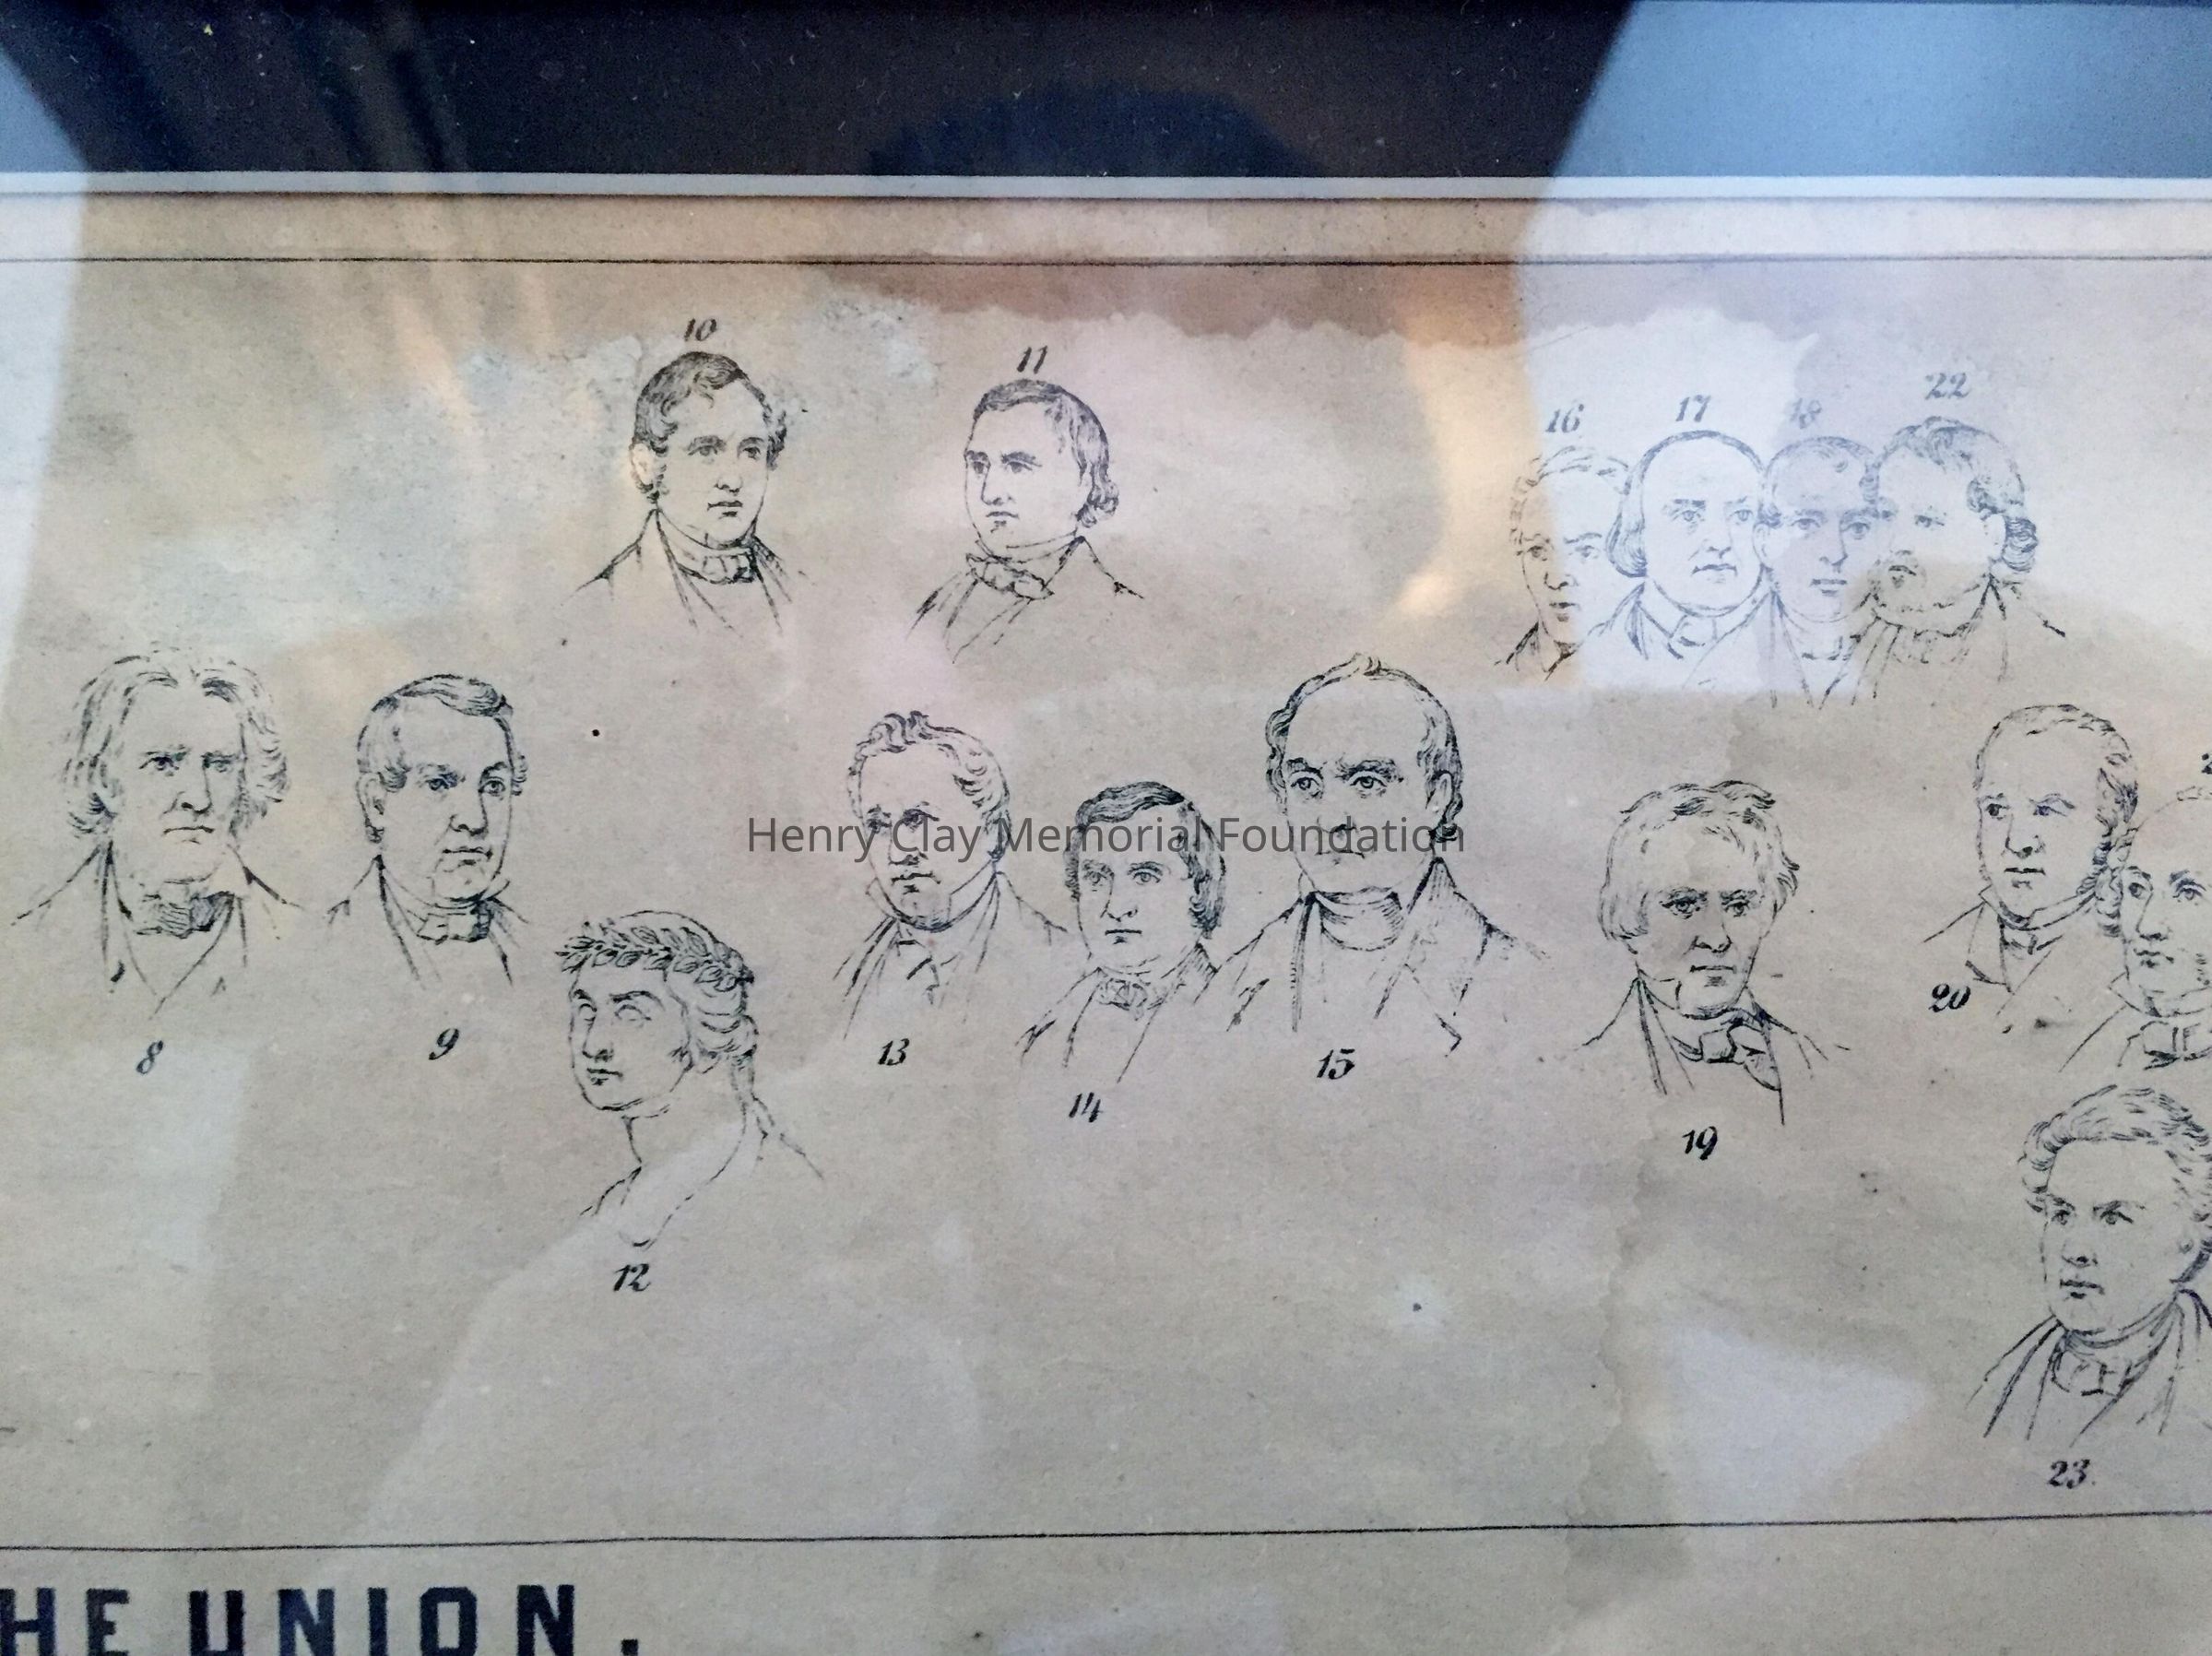 10
11
16 17 18 22
Henry Clay Memorial Foundation
20
8
9
13
15
14
19
12
23.
HE UNION.